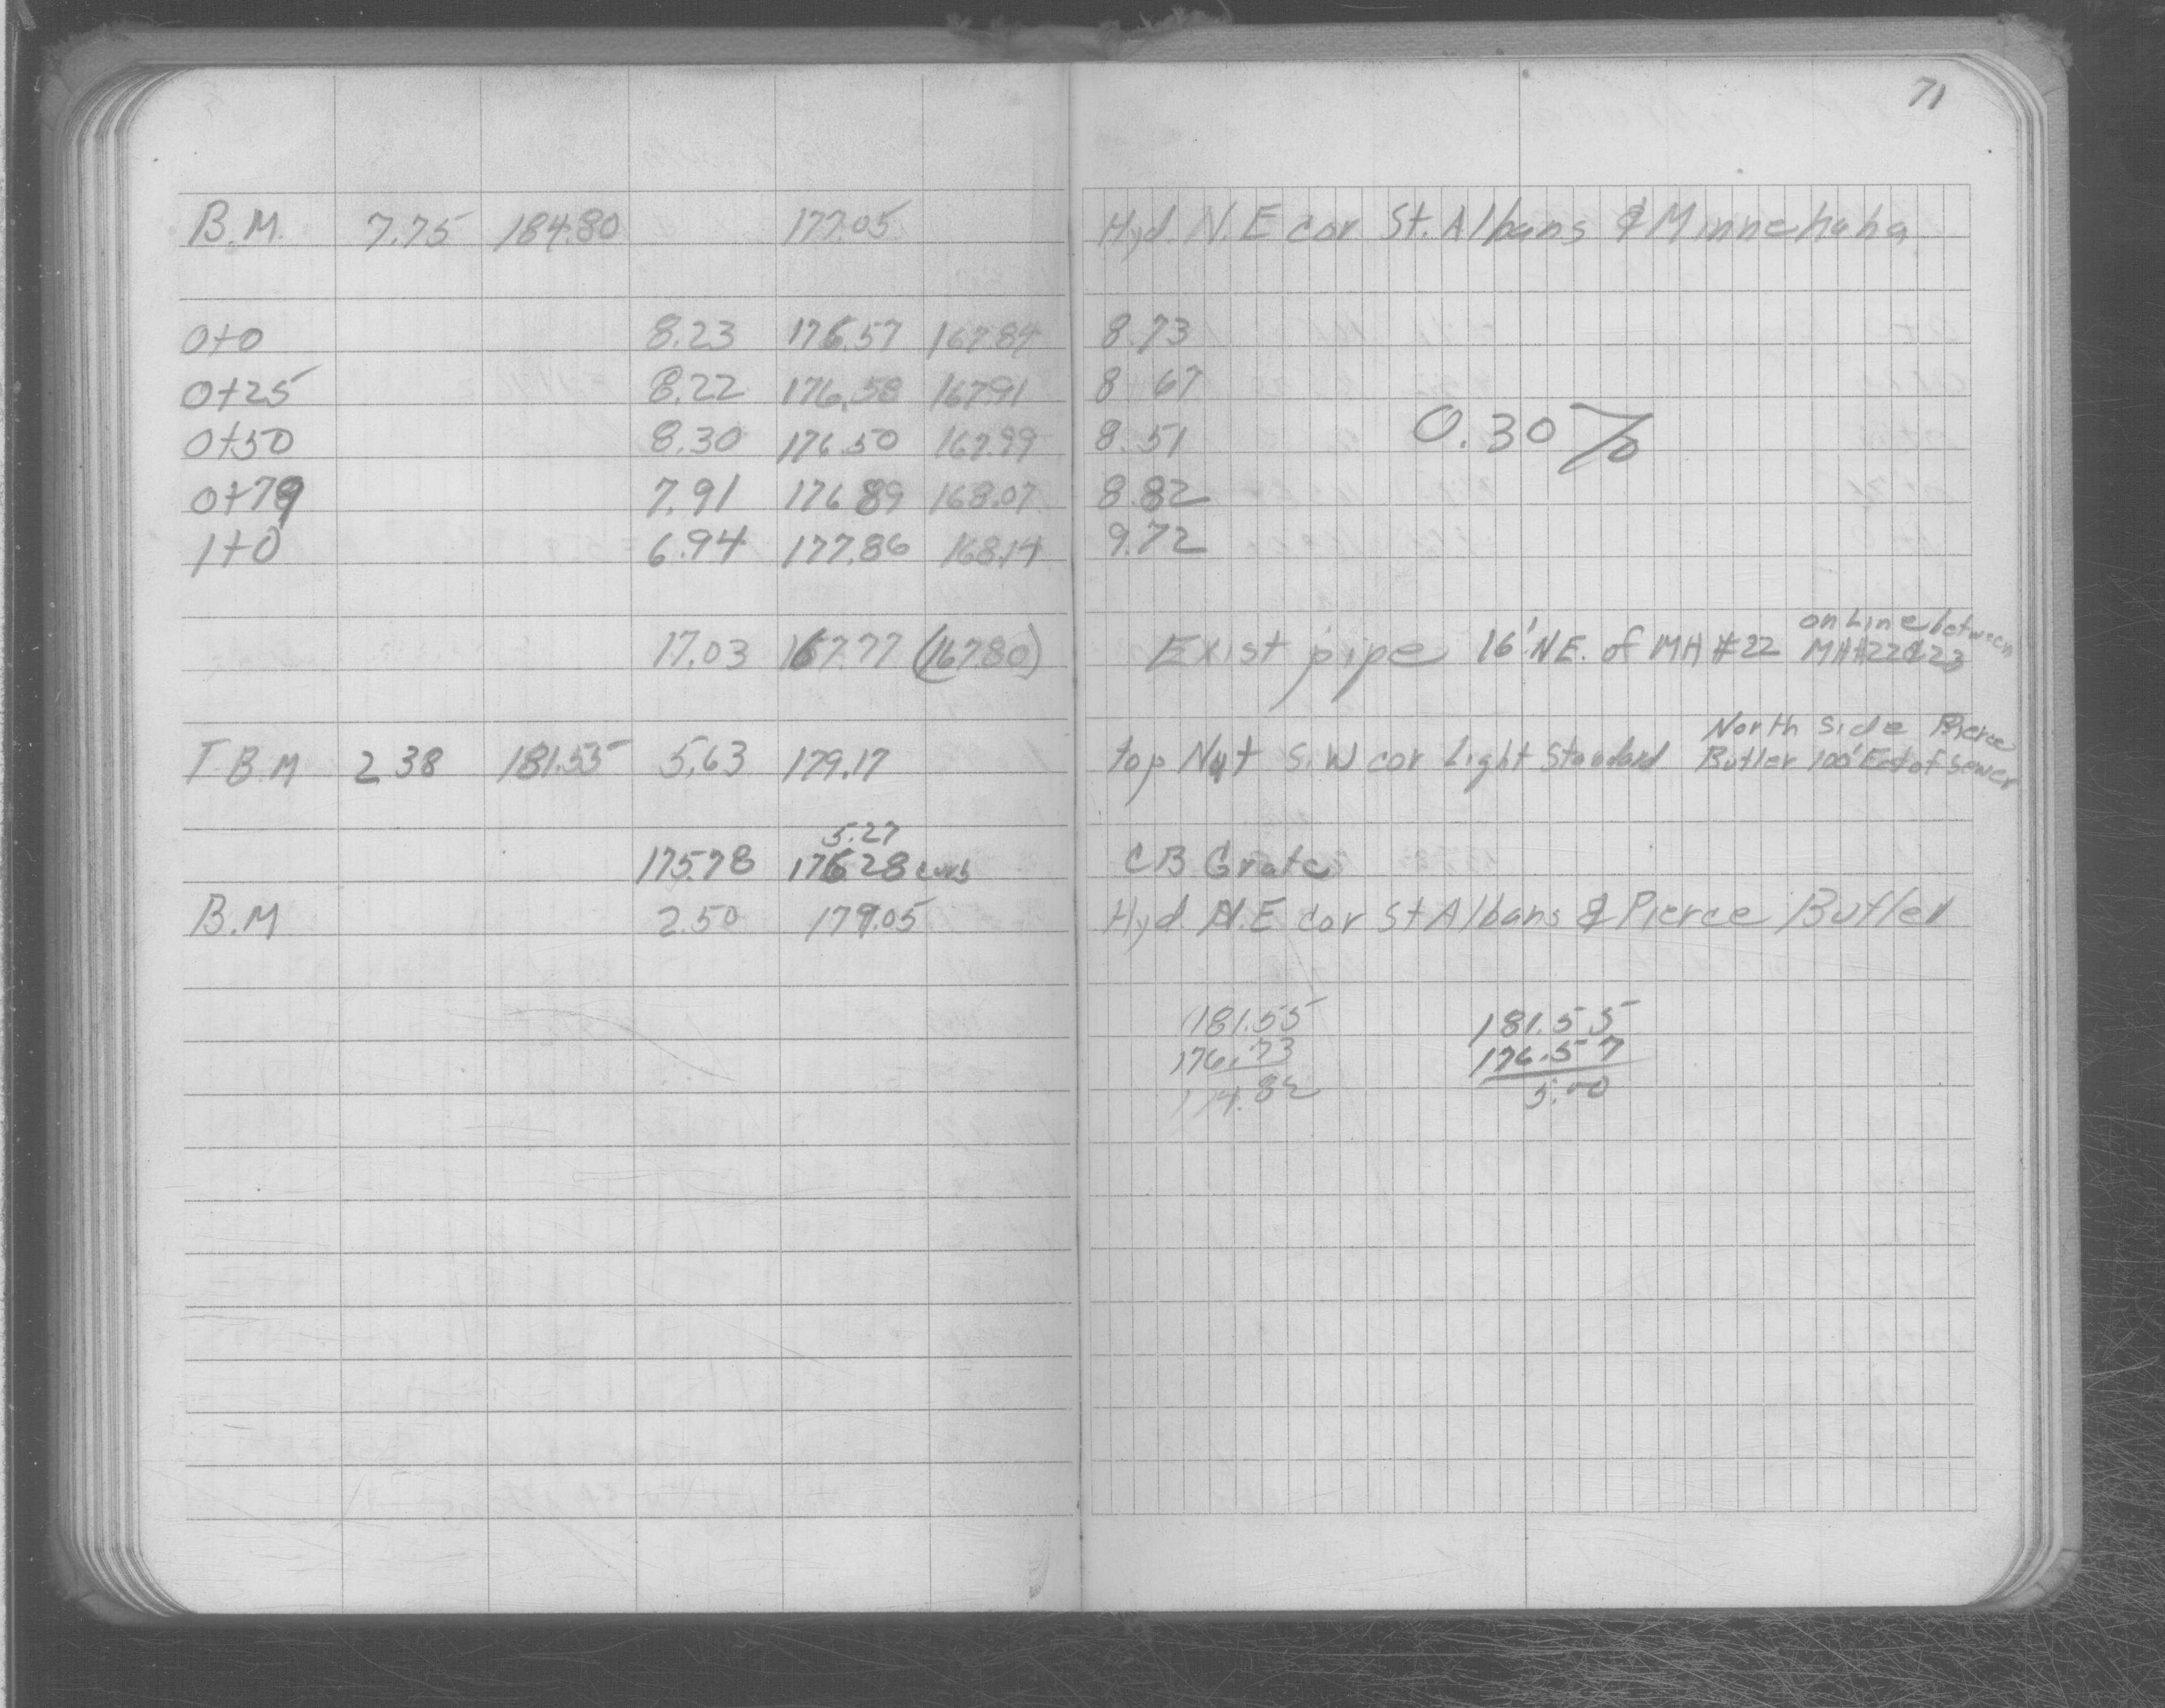 71
B.M. 7.75 184.80 177.05 Hyd. N.E cor St. Albans & Minnehaha
0+0 8.23 176.57 167.84 8.73
0+25 8.22 176.58 167.91 8 67
0+50 8.30 176.50 167.99 8.51
0.30%
0+79 7.91 176 89 168.07 8.82
1+0 6.94 177.86 168.14 9.72
on Line between
17.03 167.77 (167.80) Exist pipe 16' NE. of MH #22 MH#22&23
North Side Pierce
T B.M 2 38 181.55 5.63 179.17 top Nut S.W cor Light Standard Butler 100' East of Sewer
5.27
175.78 176.28 curb CB Grate
B.M 2.50 179.05 Hyd. N.E cor St Albans & Pierce Butler
181.55 181.55
176.73 176.57
174.82 5.00